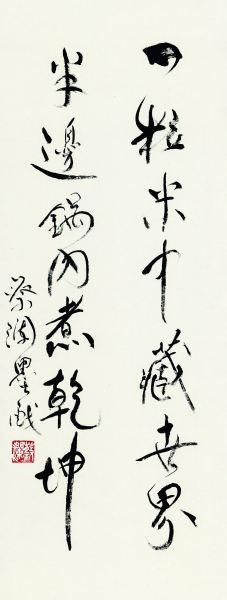 一粒米中藏世界
半邊鍋內煮乾坤
蔡瀾墨戲